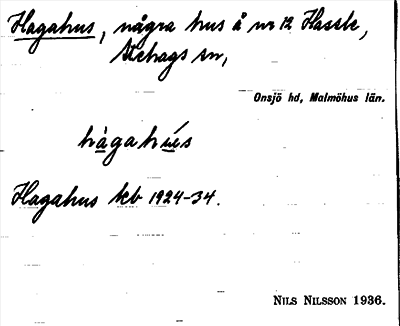 Hagahus, några hus å nr 12 Hassle,
Stehags sn,
Onsjö hd, Malmöhus län.
hågahúes
Hagahus kb 1924-34.
NILS NILSSON 1936.